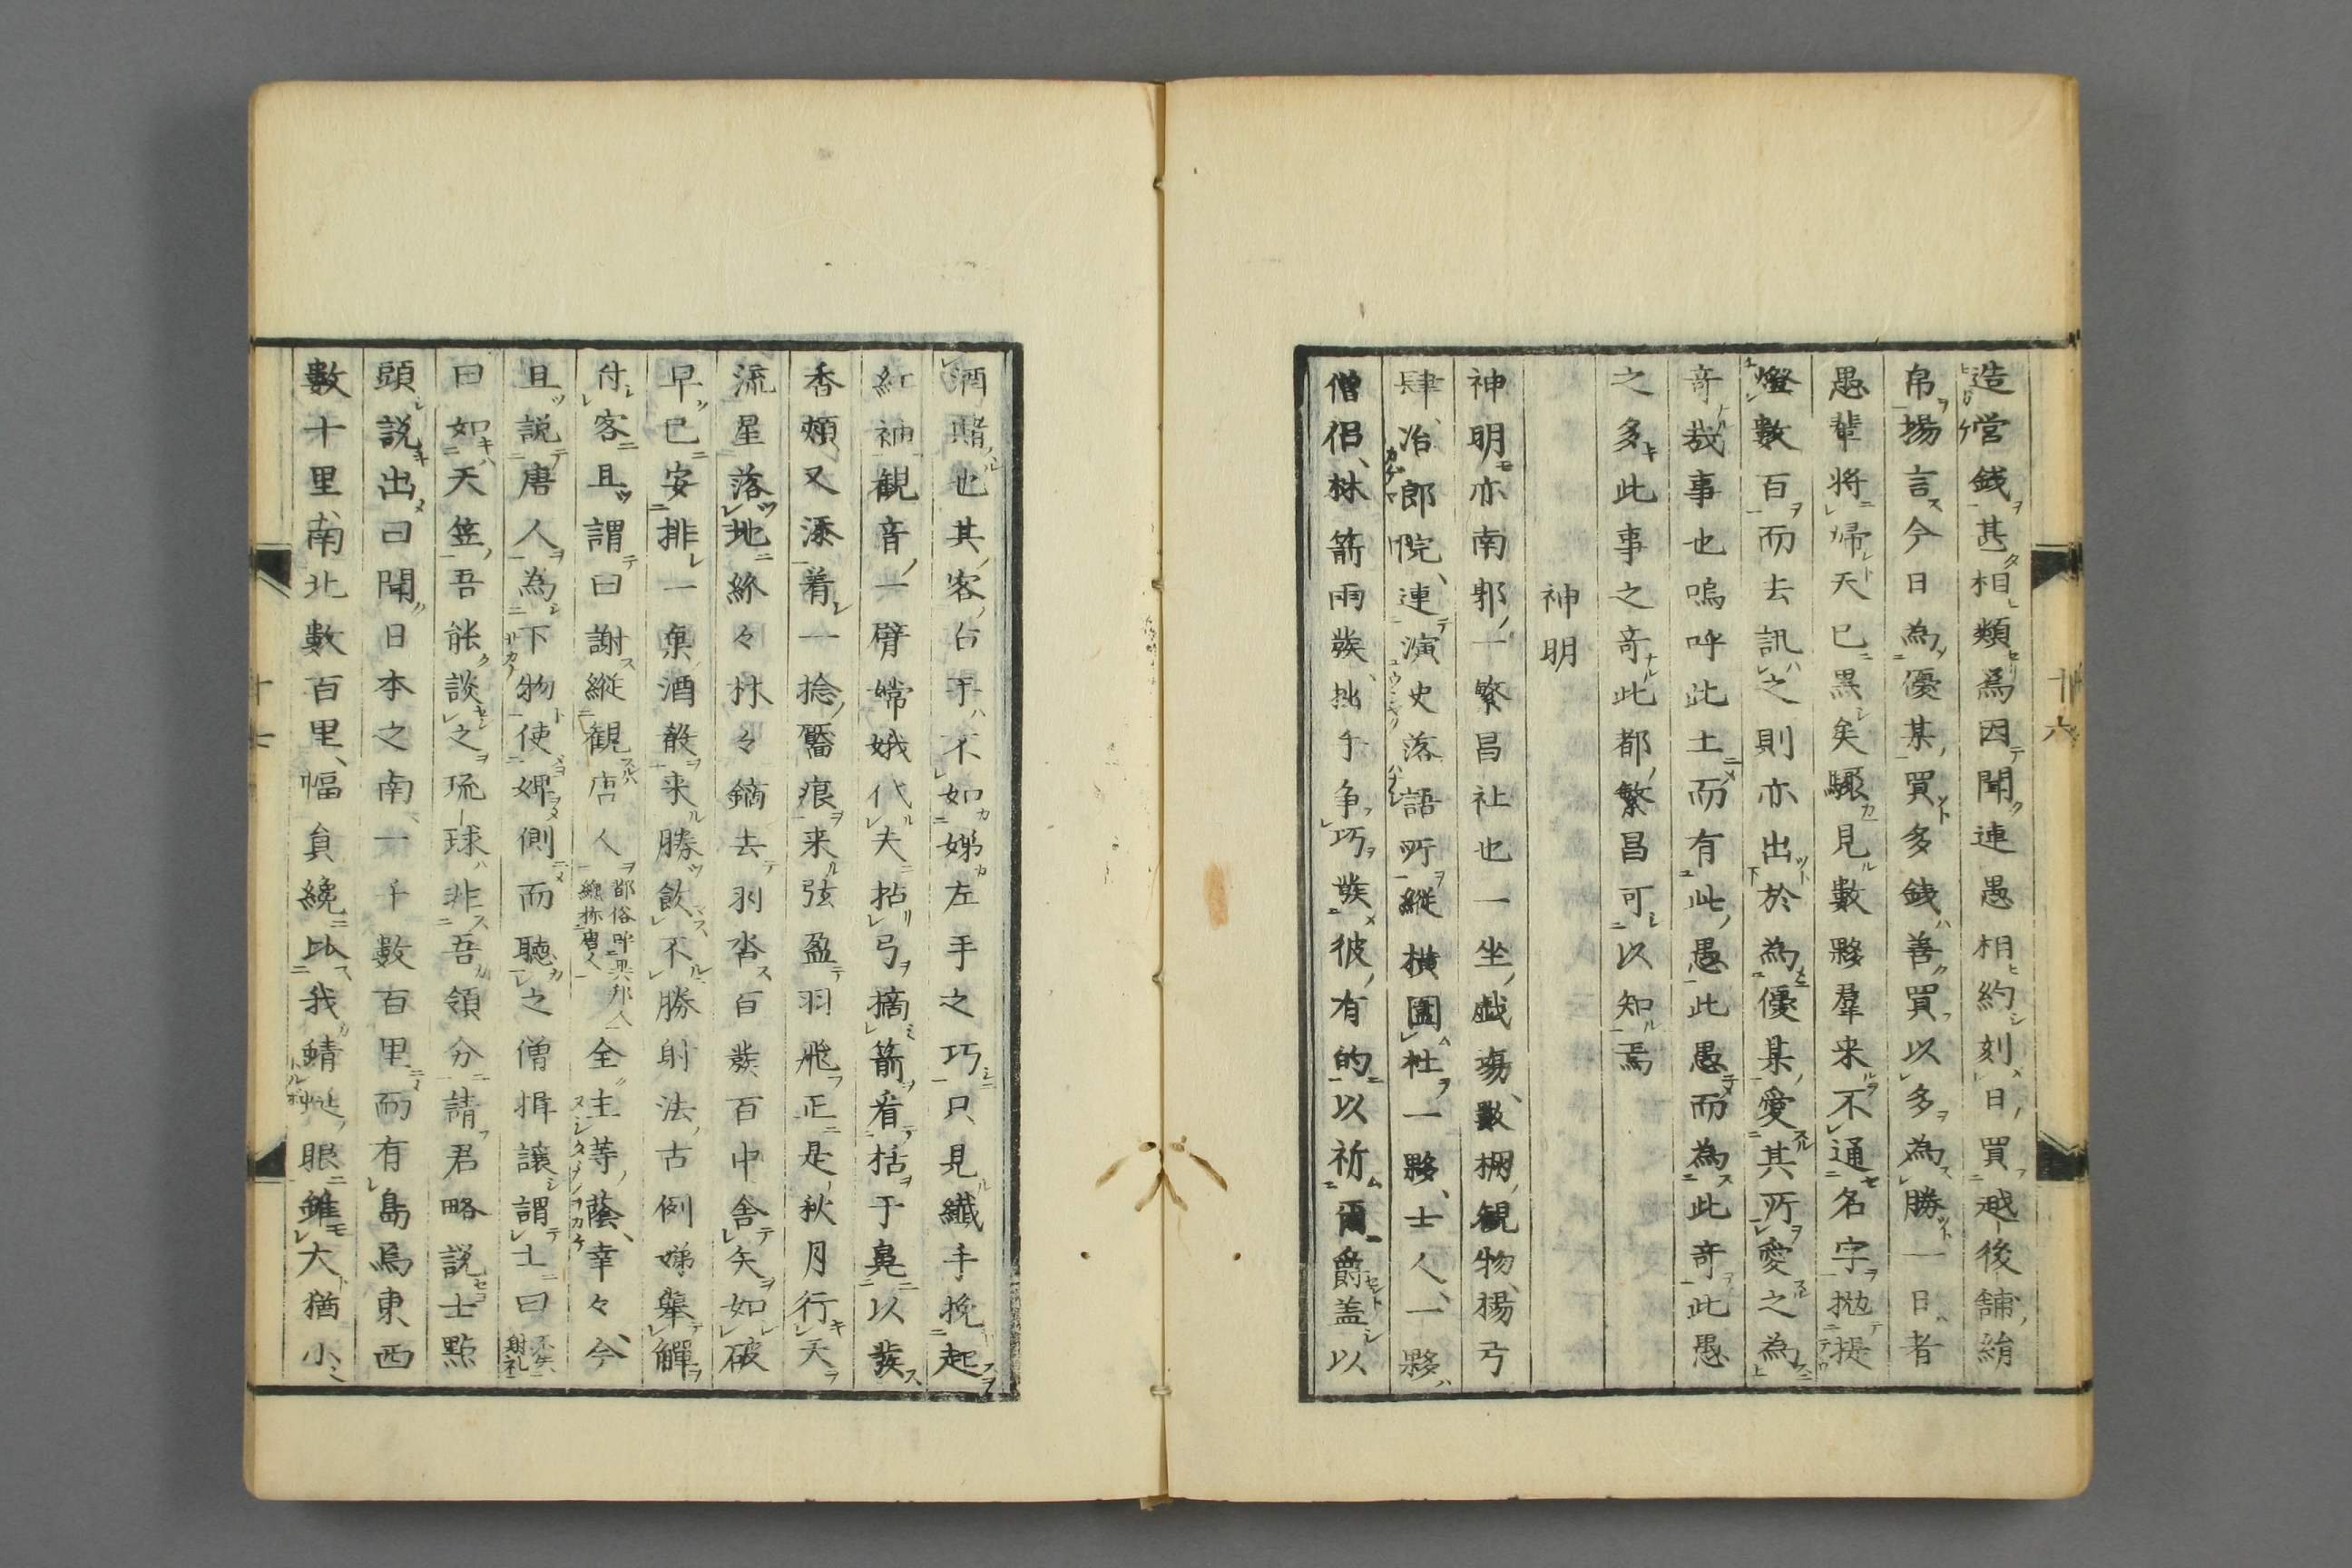 造営錢甚相類焉因聞連愚相約刻日買越後舗絹
帛揚言今日為優某買多錢善買以多為勝一日者
愚輩将帰天已黒矣驟見數夥羣来不通名字抛提
燈數百而去訊之則亦出於為優某愛其所愛之為
奇哉事也嗚呼此土而有此愚此愚而為此奇此愚
之多此事之奇此都繁昌可以知焉
神明
神明亦南郭一繁昌祉也一坐戯場數棚観物楊弓
肆冶郎院連演史落語所縦横圍社一夥士人一夥
僧侶林箭雨蔟拙手争巧蔟彼有的以祈爾爵盖以
廿六
酒賭也其客右手不如娣左手之巧只見纖手挽起
紅袖観音一臂嫦娥代夫拈弓摘箭看括于鼻以蔟
香頬又添着一捻靨痕来弦盈羽飛正是秋月行天
流星落地絲々林々鏑去羽沓百蔟百中舎矢如破
早已安排一菓酒殽来勝飲不勝射法古例娣舉觶
付客且謂曰謝縦観唐人都俗呼異邦人總称唐人全主等蔭幸々今
且説唐人為下物使婢側而聽之僧揖讓謂士曰
曰如天竺吾能談之琉球非吾領分請君略説士點
頭説出曰聞日本之南一千數百里而有島焉東西
數十里南北數百里幅員纔比我蜻蜓眼雖大猶小